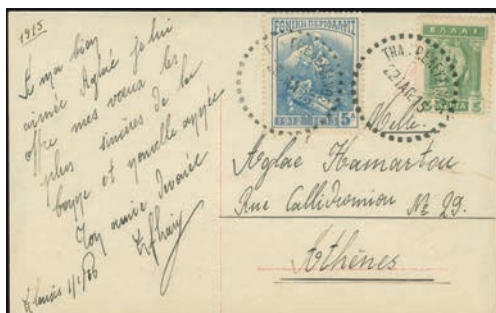 1915
A ma bien
aimée Aglaé je lui
offre mes vœux les
plus sincères de la
bonne et nouvelle année
Ton amie dévouée
1/1/
ΕΘΝΙΚΗ ΠΕΡΙΘΑΛΨΙΣ
1912
5Λ
ΕΛΛΑΣ
5
ΛΕΠΤΑ
Melle
Aglaé Hamartou
Rue Callidromiou № 29.
Athènes